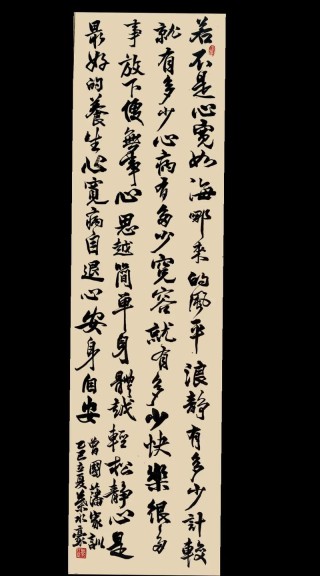 若不是心寬如海哪来的風平浪静有多少計較
就有多少心病有多少寬容就有多少快樂很多
事放下便無事心思越簡单身體越輕松静心是
最好的養生心寬病自退心安身自安
曾國藩家訓
乙巳立夏